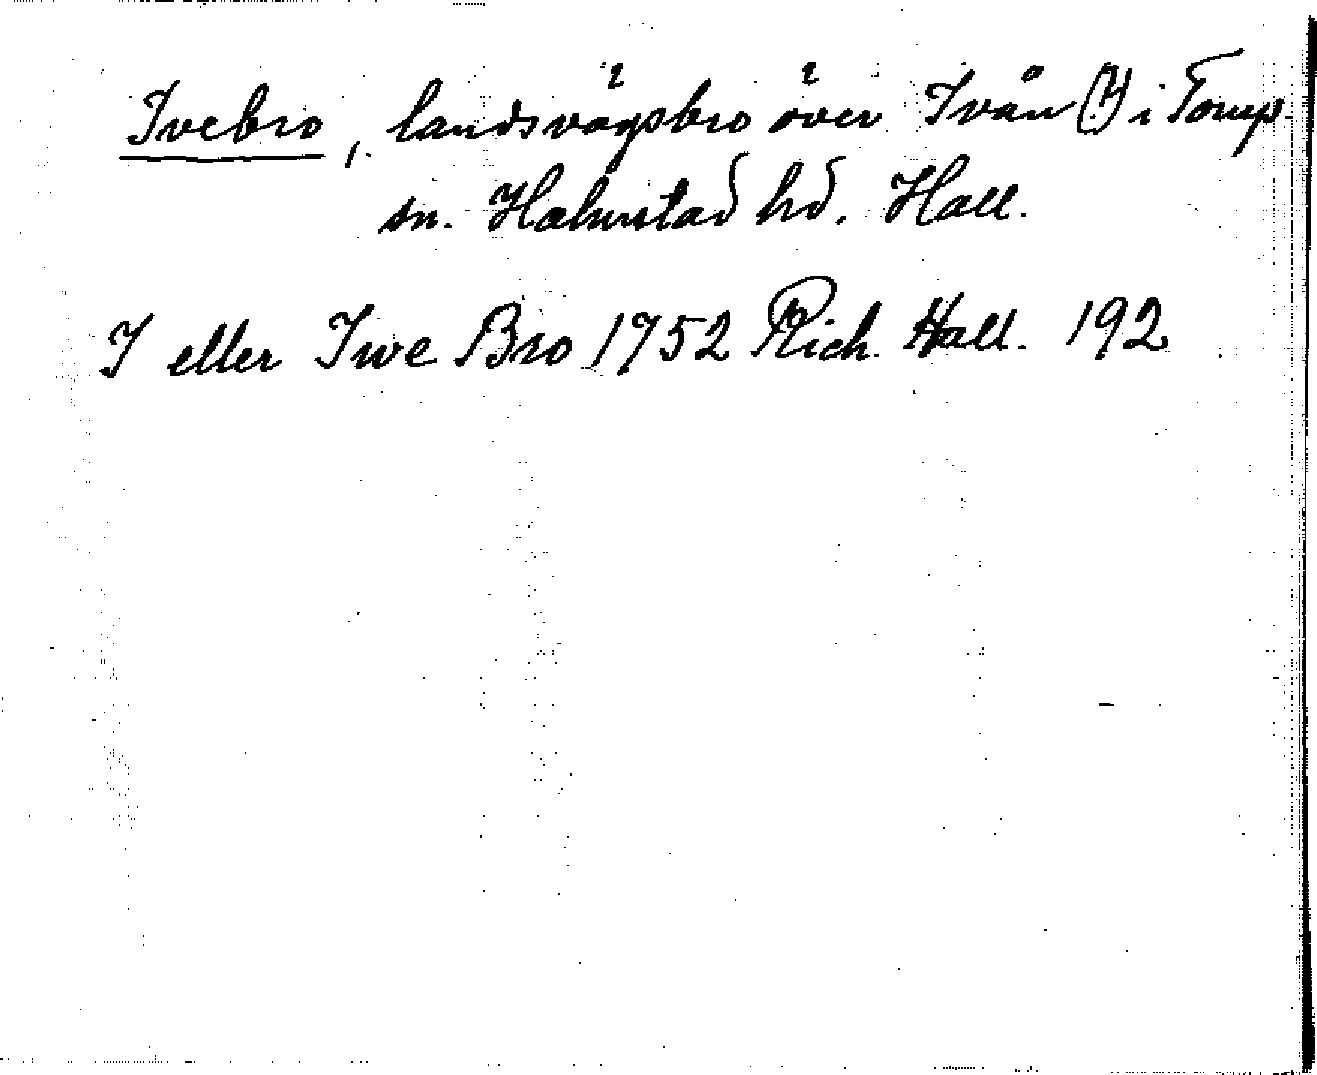 Ivebro, landsvägsbro över Ivån (?) i Torup
sn. Halmstad hd. Hall.
I eller Iwe Bro 1752 Rich. Hall. 192